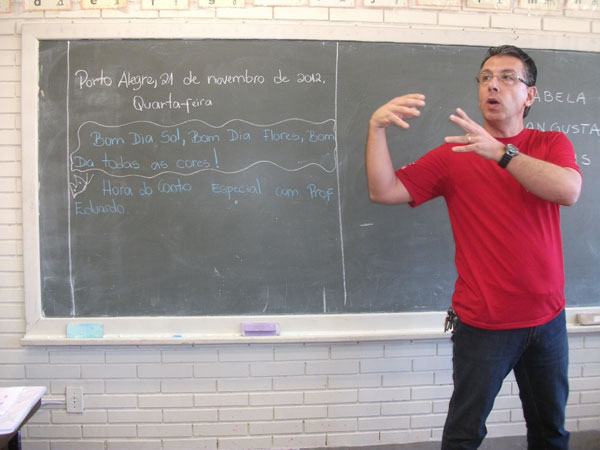 Porto Alegre, 21 de novembro de 2012.
Quarta-feira
Bom Dia Sol, Bom Dia Flores, Bom
Dia todas as cores!
Hora do Conto Especial com Prof
Eduardo.
ABELA
ANGUSTA